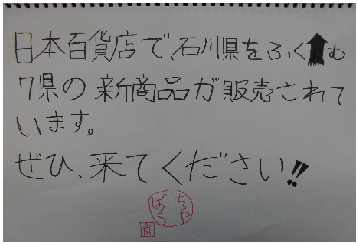 日本百貨店で、石川県をふくむ
7県の新商品が販売されて
います。
ぜひ、来てください!!